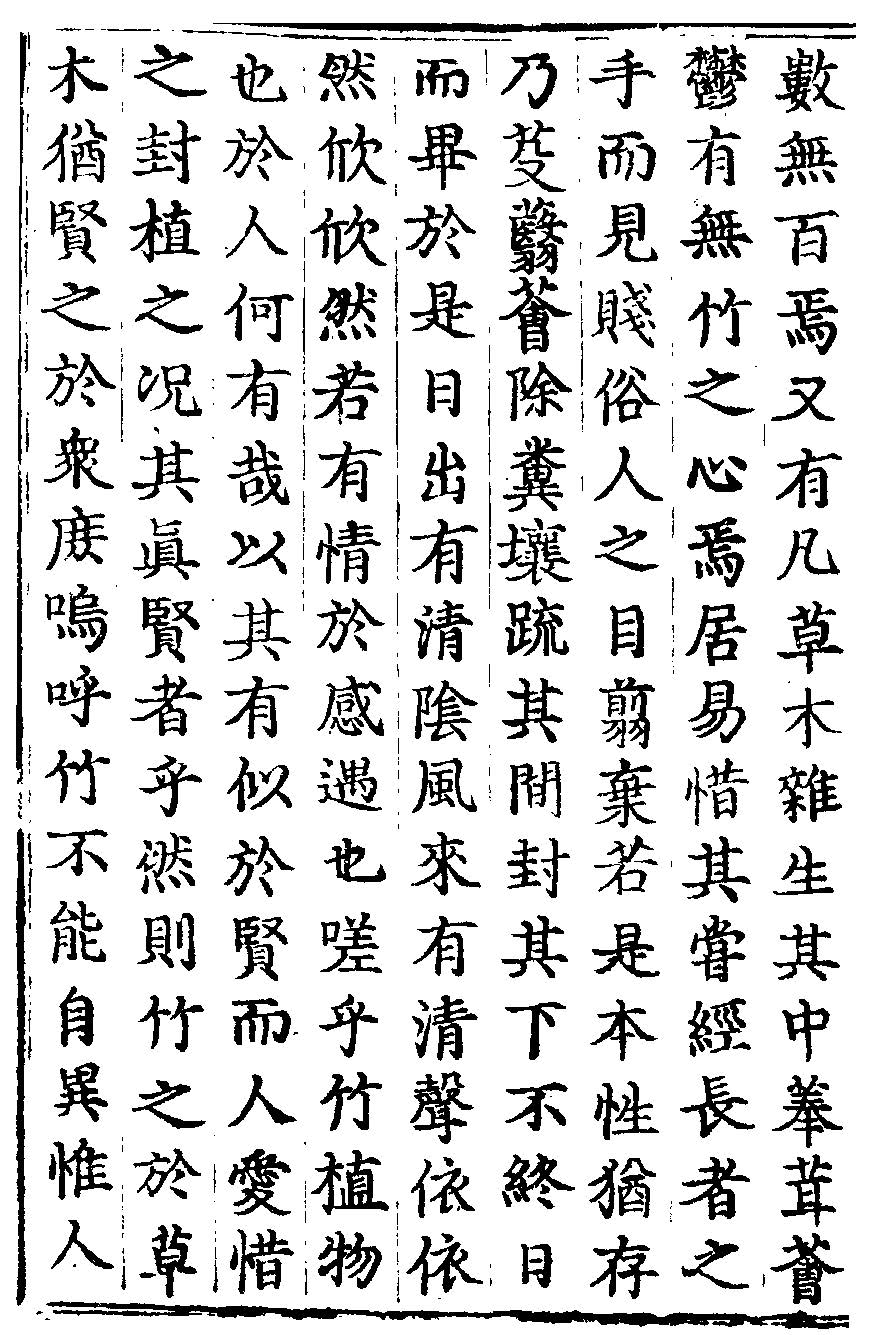 數無百焉又有凡草木雜生其中菶茸薈
鬱有無竹之心焉居易惜其嘗經長者之
手而見賤俗人之目翦棄若是本性猶存
乃芟蘙薈除糞壤疏其間封其下不終日
而畢於是日出有清陰風來有清聲依依
然欣欣然若有情於感遇也嗟乎竹植物
也於人何有哉以其有似於賢而人愛惜
之封植之况其眞賢者乎然則竹之於草
木猶賢之於衆庻嗚呼竹不能自異惟人